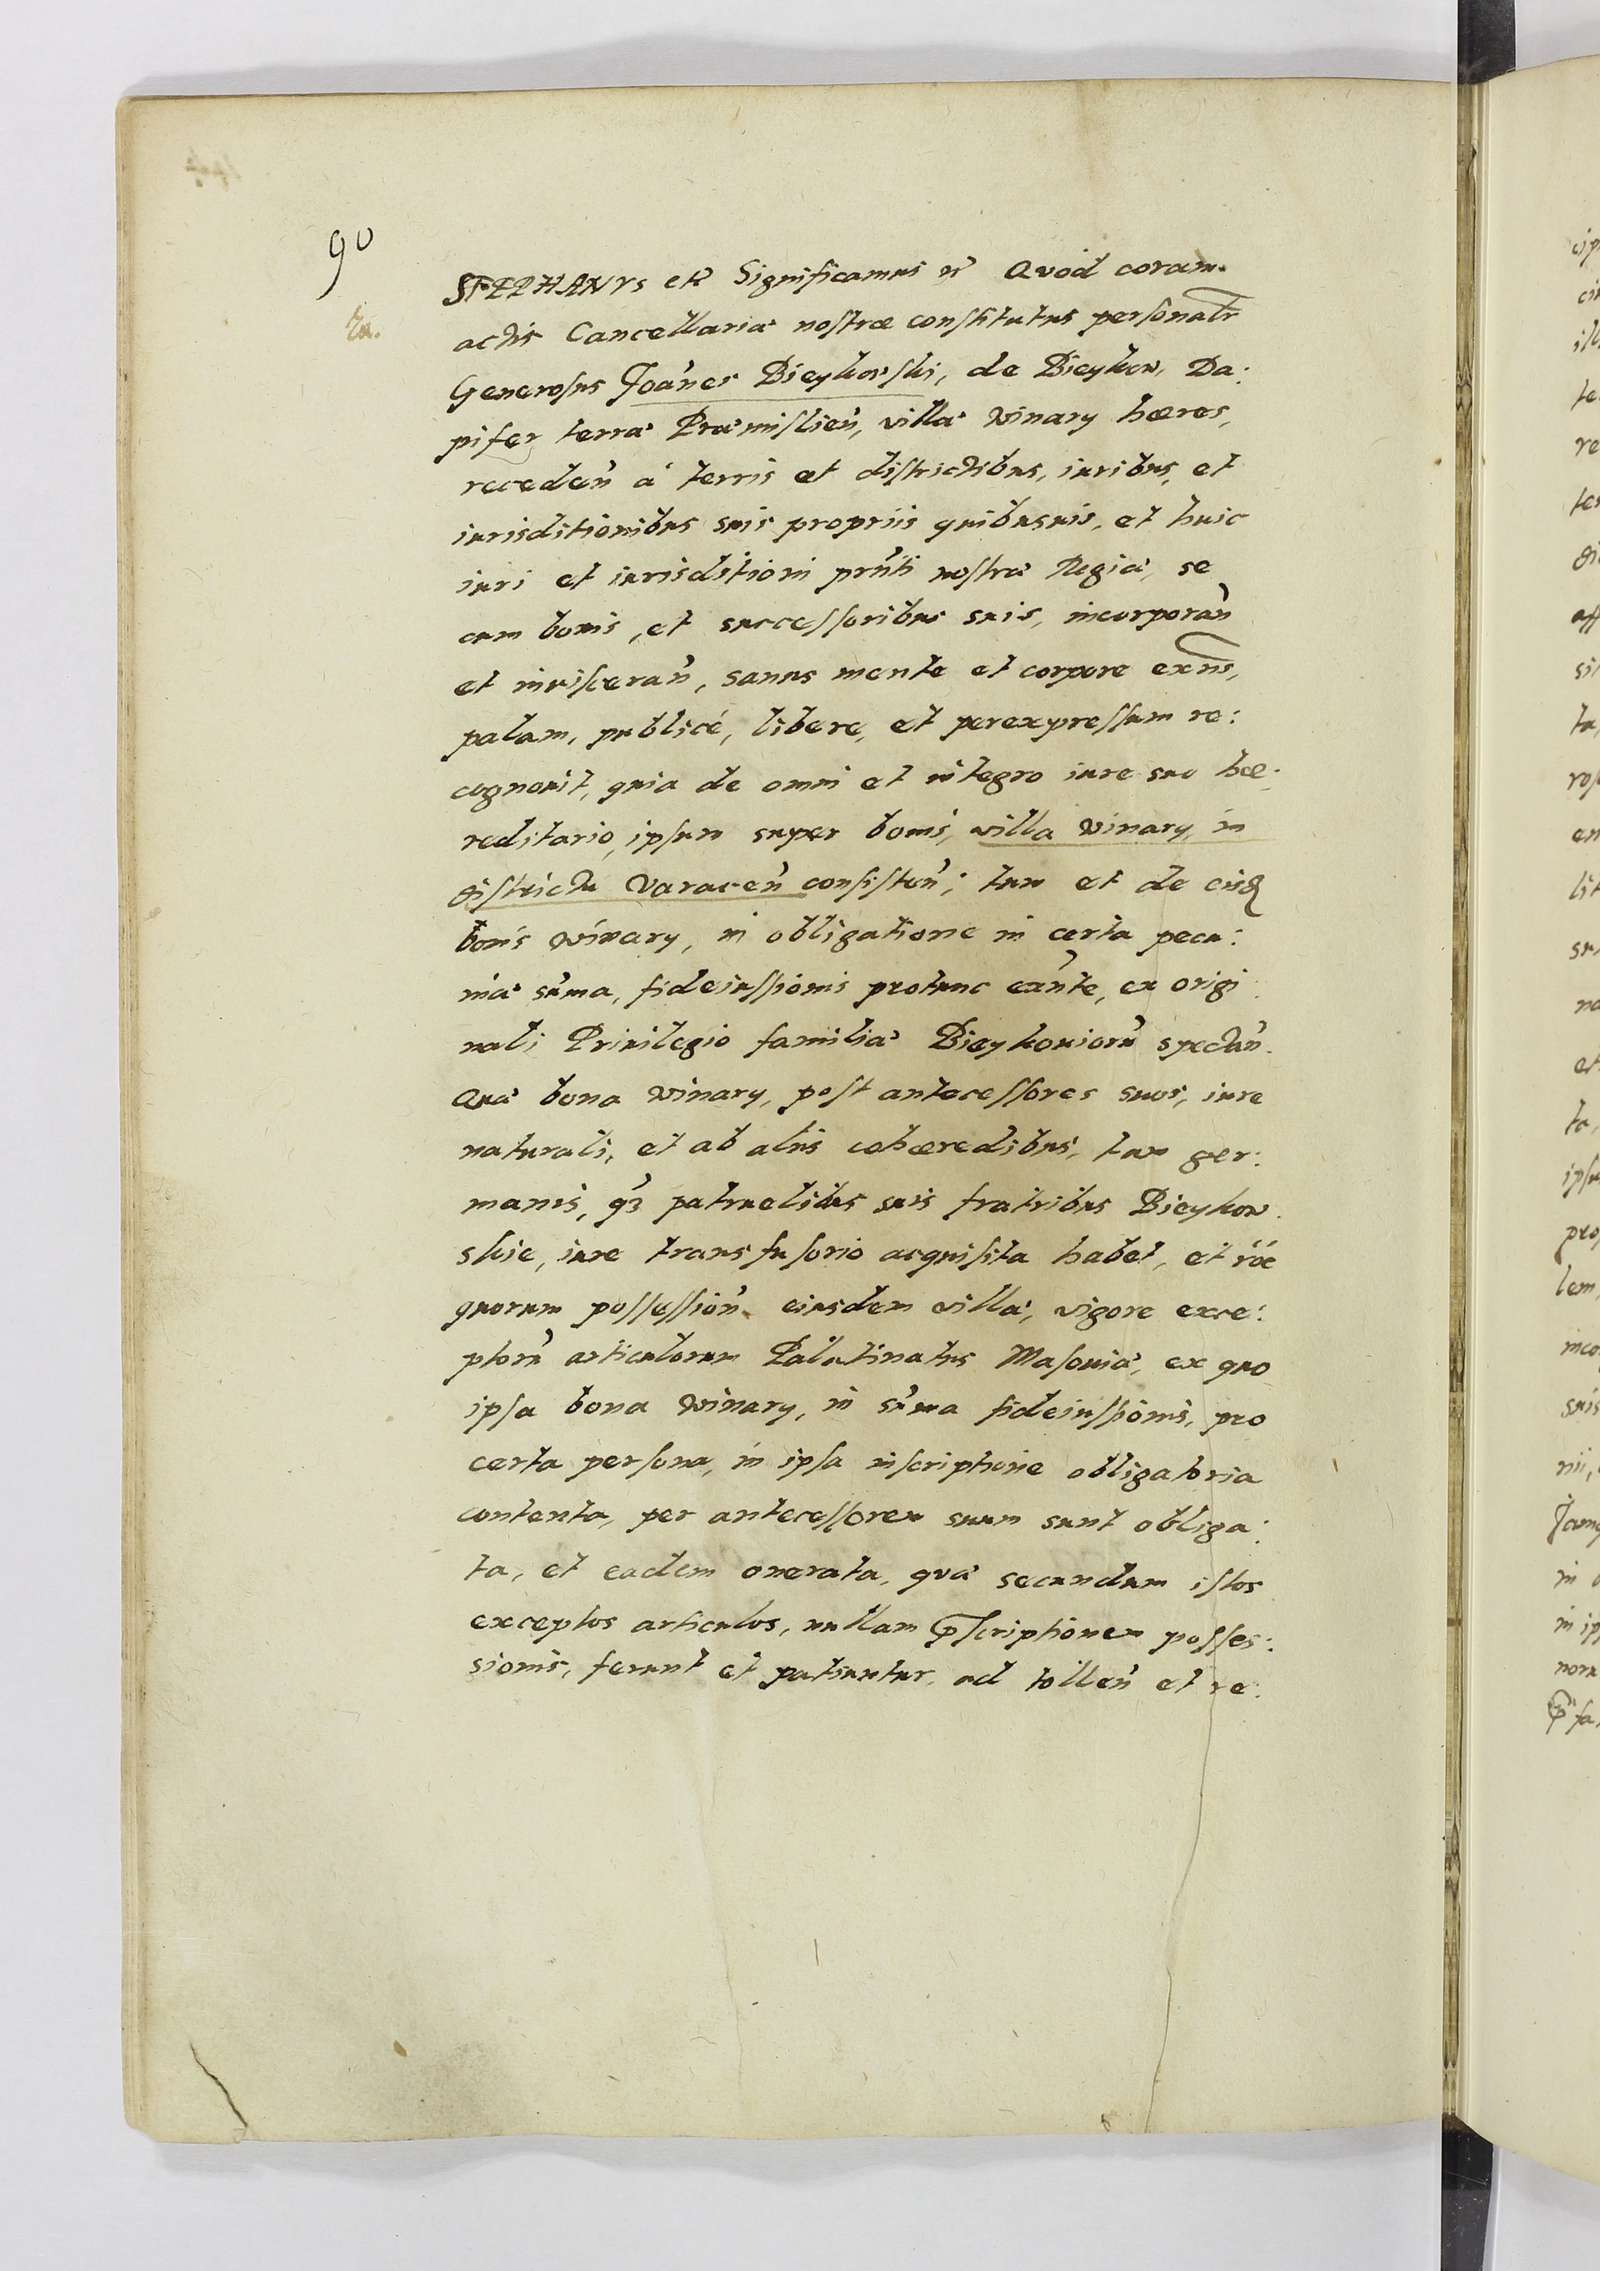 90
STEPHANVS etc Significamus etc Quod coram
actis Cancellariæ nostræ constitutus personalr
Generosus Joānes Bieykowski, de Bieykow, Da:
pifer terræ Præmislien̄, villæ Winary hæres,
receden̄ à terris et districtibus, iuribus, et
iurisditionibus suis propriis quibusuis, et huic
iuri et iurisditioni prn̄ti nostræ Regiæ, se
cum bonis, et successoribus suis, incorporan̄
et inuisceran̄, sanus mente et corpore exn̄s,
palam, publicé, libere, et perexpressum re:
cognouit, quia de omni et integro iure suo hæ:
reditario, ipsum super bonis, villa Winary, in
districtu Varacen̄ consisten̄; tum et de eisd
bonis Winary, in obligatione in certa pecu:
niæ sūma, fideiussionis protunc exn̄te, ex origi
nali Priuilegio familiæ Bieykouiorū spectan̄.
Quæ bona Winary, post antecessores suos, iure
naturali, et ab aliis cohæredibus, tam ger:
manis, q̄3 patruelibus suis fratribus Bieykow
skie, iure transfusorio acquisita habet, et rōe
quorum possession̄ eiusdem villæ, vigore exce:
ptorū articulorum Palatinatus Masouiæ, ex quo
ipsa bona Winary, in sūma fideiussionis, pro
certa persona, in ipsa inscriptione obligatoria
contenta, per antecessorem suum sunt obliga:
ta, et eadem onerata, quæ secundum istos
exceptos articulos, nullam p̄scriptionem posses:
sionis, ferunt et patiuntur, ad tollen̄ et re: